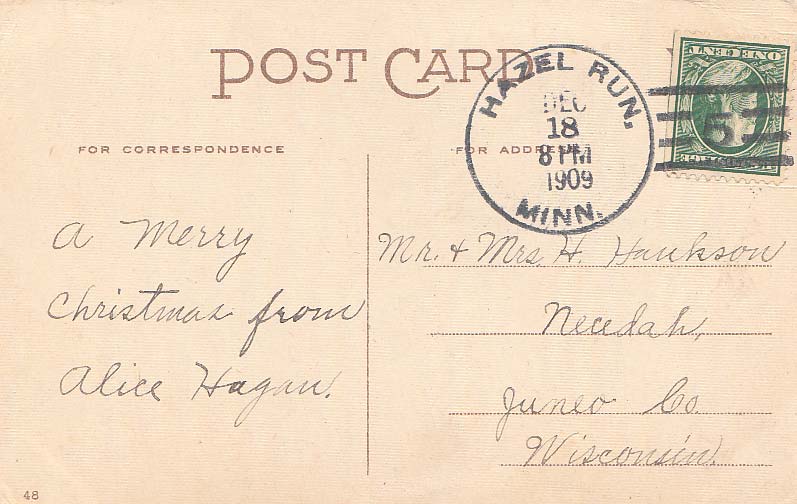 POST CARD
HAZEL RUN,
DEC
18
8 PM
1909
MINN.
5
ONE CENT
FOR CORRESPONDENCE
FOR ADDRESS
A Merry
Christmas from
Alice Hagan.
Mr. & Mrs. H. Haukson
Necedah,
Juneo Co.
Wisconsin.
48